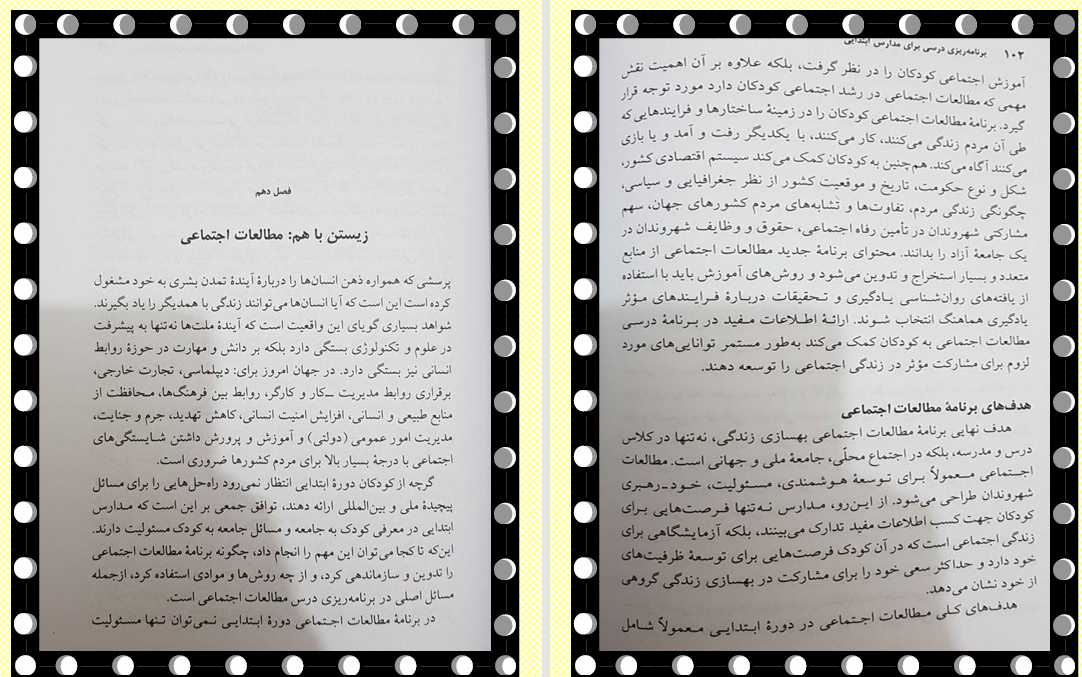 فصل دهم
زیستن با هم: مطالعات اجتماعی
پرسشی که همواره ذهن انسان‌ها را دربارهٔ آیندهٔ تمدن بشری به خود مشغول
کرده است این است که آیا انسان‌ها می‌توانند زندگی با همدیگر را یاد بگیرند.
شواهد بسیاری گویای این واقعیت است که آیندهٔ ملت‌ها نه‌تنها به پیشرفت
در علوم و تکنولوژی بستگی دارد بلکه بر دانش و مهارت در حوزهٔ روابط
انسانی نیز بستگی دارد. در جهان امروز برای: دیپلماسی، تجارت خارجی،
برقراری روابط مدیریت ــ کار و کارگر، روابط بین فرهنگ‌ها، محافظت از
منابع طبیعی و انسانی، افزایش امنیت انسانی، کاهش تهدید، جرم و جنایت،
مدیریت امور عمومی (دولتی) و آموزش و پرورش داشتن شایستگی‌های
اجتماعی با درجهٔ بسیار بالا برای مردم کشورها ضروری است.
گرچه از کودکان دورهٔ ابتدایی انتظار نمی‌رود راه‌حل‌هایی را برای مسائل
پیچیدهٔ ملی و بین‌المللی ارائه دهند، توافق جمعی بر این است که مدارس
ابتدایی در معرفی کودک به جامعه و مسائل جامعه به کودک مسئولیت دارند.
این‌که تا کجا می‌توان این مهم را انجام داد، چگونه برنامهٔ مطالعات اجتماعی
را تدوین و سازماندهی کرد، و از چه روش‌ها و موادی استفاده کرد، ازجمله
مسائل اصلی در برنامه‌ریزی درس مطالعات اجتماعی است.
در برنامهٔ مطالعات اجتماعی دورهٔ ابتدایی نمی‌توان تنها مسئولیت
۱۰۲ برنامه‌ریزی درسی برای مدارس ابتدایی
آموزش اجتماعی کودکان را در نظر گرفت، بلکه علاوه بر آن اهمیت نقش
مهمی که مطالعات اجتماعی در رشد اجتماعی کودکان دارد مورد توجه قرار
گیرد. برنامهٔ مطالعات اجتماعی کودکان را در زمینهٔ ساختارها و فرایندهایی که
طی آن مردم زندگی می‌کنند، کار می‌کنند، با یکدیگر رفت و آمد و یا بازی
می‌کنند آگاه می‌کند. هم‌چنین به کودکان کمک می‌کند سیستم اقتصادی کشور،
شکل و نوع حکومت، تاریخ و موقعیت کشور از نظر جغرافیایی و سیاسی،
چگونگی زندگی مردم، تفاوت‌ها و تشابه‌های مردم کشورهای جهان، سهم
مشارکتی شهروندان در تأمین رفاه اجتماعی، حقوق و وظایف شهروندان در
یک جامعهٔ آزاد را بدانند. محتوای برنامهٔ جدید مطالعات اجتماعی از منابع
متعدد و بسیار استخراج و تدوین می‌شود و روش‌های آموزش باید با استفاده
از یافته‌های روان‌شناسی یادگیری و تحقیقات دربارهٔ فرایندهای مؤثر
یادگیری هماهنگ انتخاب شوند. ارائهٔ اطلاعات مفید در برنامهٔ درسی
مطالعات اجتماعی به کودکان کمک می‌کند به‌طور مستمر توانایی‌های مورد
لزوم برای مشارکت مؤثر در زندگی اجتماعی را توسعه دهند.
هدف‌های برنامهٔ مطالعات اجتماعی
هدف نهایی برنامهٔ مطالعات اجتماعی بهسازی زندگی، نه‌تنها در کلاس
درس و مدرسه، بلکه در اجتماع محلّی، جامعهٔ ملی و جهانی است. مطالعات
اجتماعی معمولاً برای توسعهٔ هوشمندی، مسئولیت، خود-رهبری
شهروندان طراحی می‌شود. از این‌رو، مدارس نه‌تنها فرصت‌هایی برای
کودکان جهت کسب اطلاعات مفید تدارک می‌بینند، بلکه آزمایشگاهی برای
زندگی اجتماعی است که در آن کودک فرصت‌هایی برای توسعهٔ ظرفیت‌های
خود دارد و حداکثر سعی خود را برای مشارکت در بهسازی زندگی گروهی
از خود نشان می‌دهد.
هدف‌های کلی مطالعات اجتماعی در دورهٔ ابتدایی معمولاً شامل